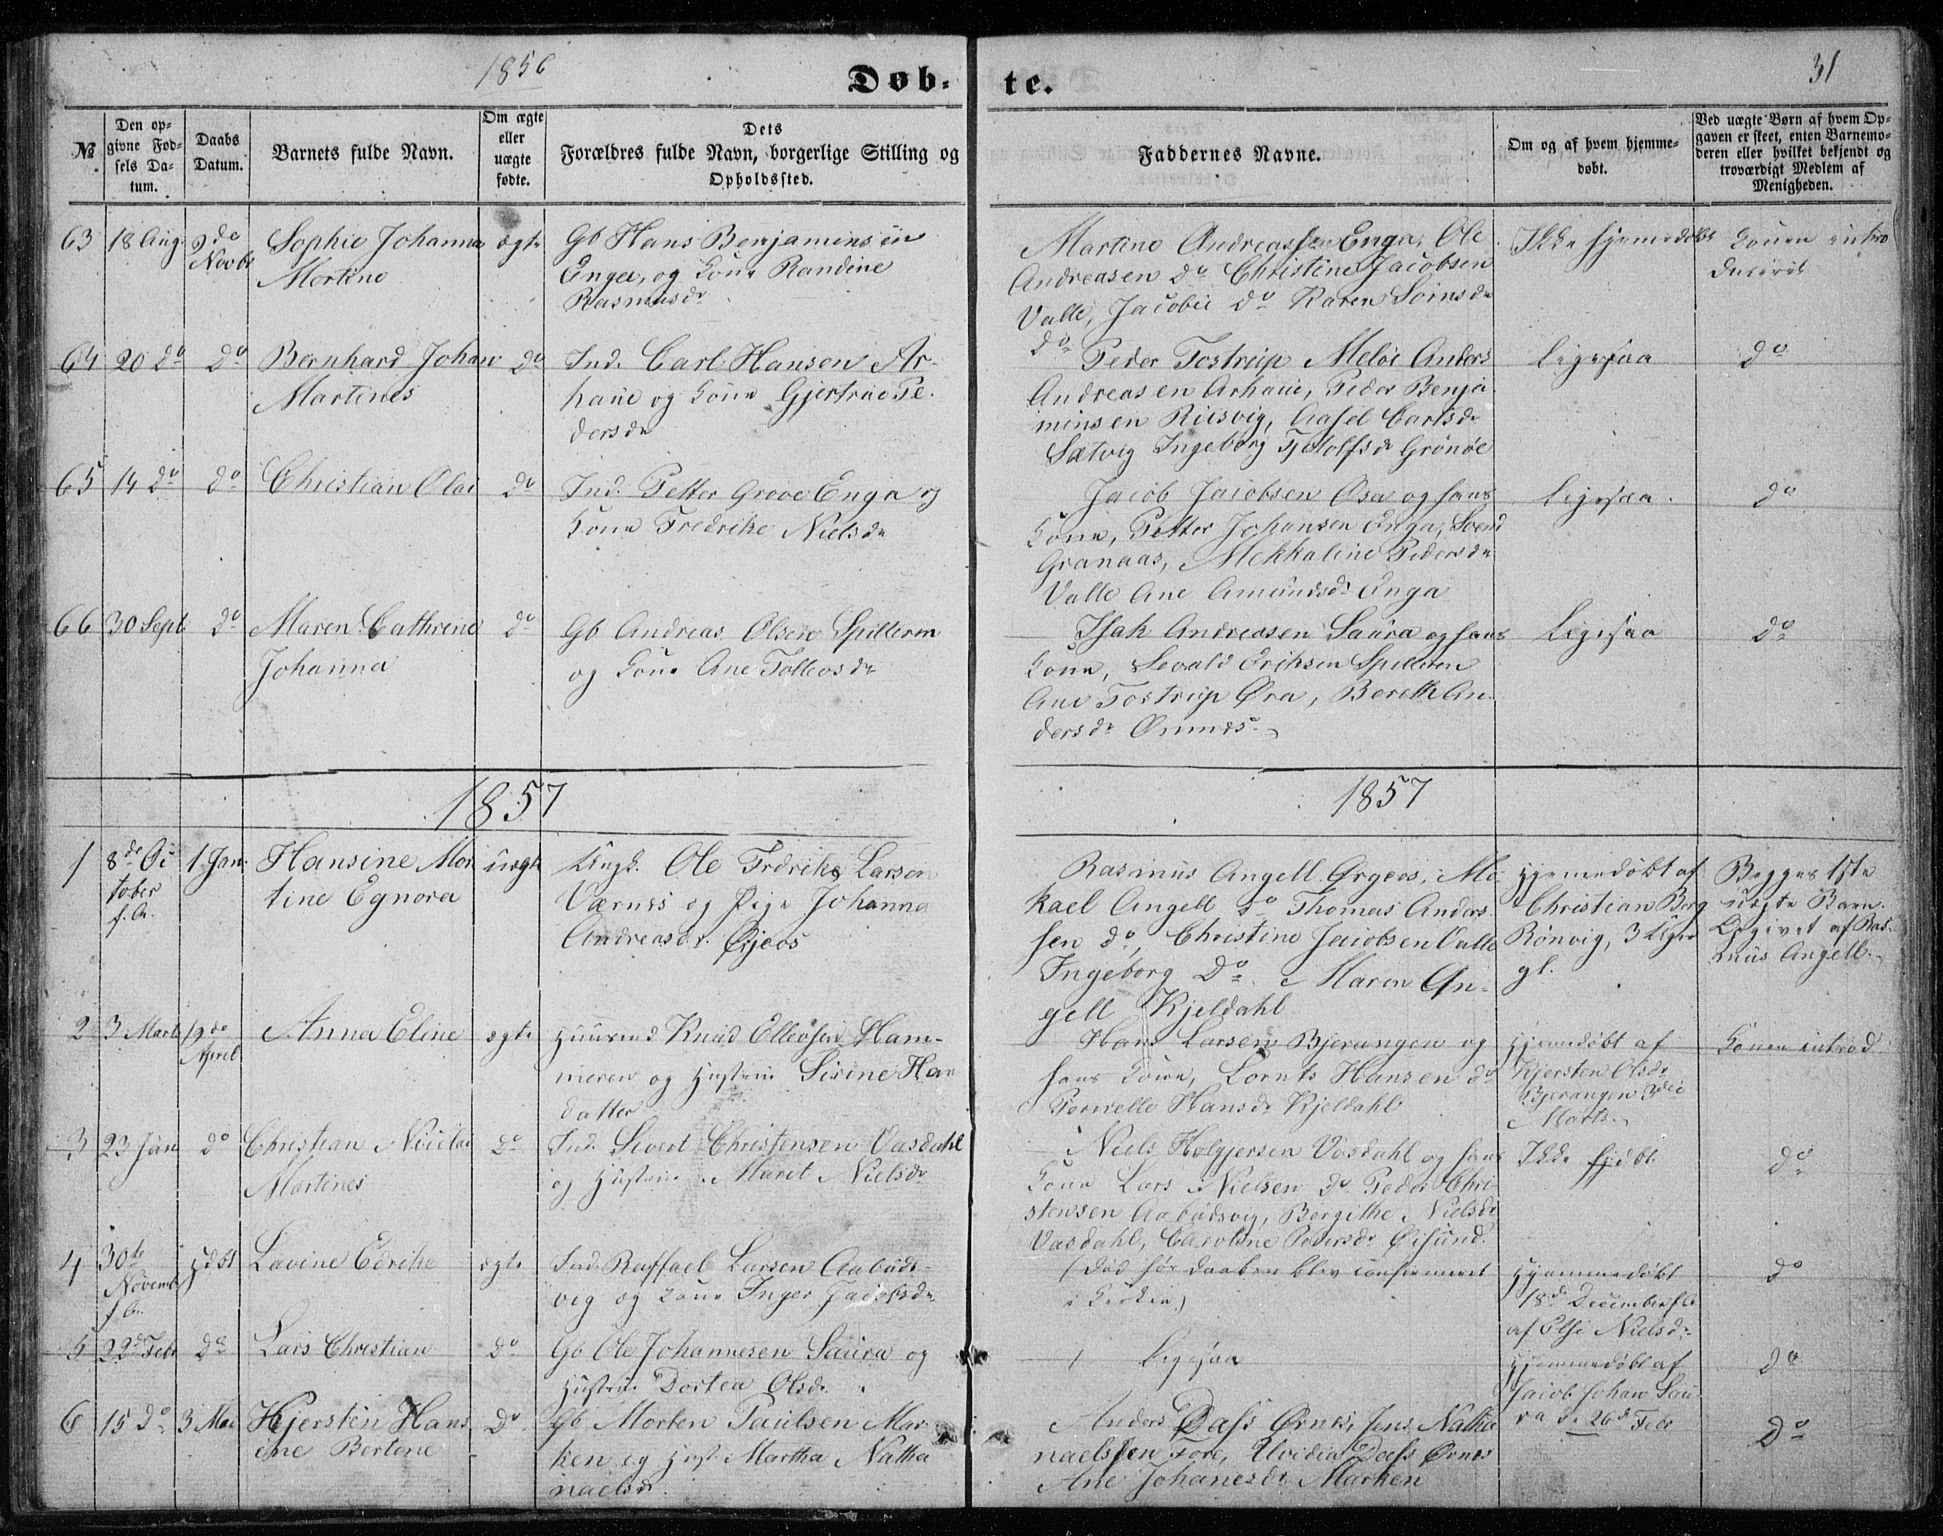 1856
Døb-
te.
31
№
Den op-
givne Fød-
sels Da-
tum.
Daabs
Datum.
Barnets fulde Navn.
Om ægte
eller
uægte
fødte.
Dets
Forældres fulde Navn, borgerlige Stilling og
Opholdssted.
Faddernes Navne.
Om og af hvem hjemme-
døbt.
Ved uægte Børn af hvem Op-
gaven er skeet, enten Barnemo-
deren eller hvilket bekjendt og
troværdigt Medlem af
Menigheden.
63 18 Aug. 2de Novbr
Sophie Johanna
Martine
ægte
Gb Hans Benjaminsen
Enga, og Kone Randine
Rasmusdr
Martino Andreassen Enga, Ole
Andreasen do Christine Jacobsen
Valle, Jacobie do Karen Sørnsdr
do
Ikke hjemmedøbt
Konen intro
duceret
64 20 do do
Bernhard Johan
Martines
do
Ind. Carl Hansen Ar-
haue og Kone Gjertrue Pe-
dersdr
Peder Tostrup Meløe Anders
Andreasen Arhaue, Peder Benja-
minsen Riisvig, Aasel Carlsdr
Sætvig Ingeborg Tjetolfsdr Grønøe
Ligesaa
do
65 14 do do
Christian Olai
do
Ind. Petter Grove Enga og
Kone Fredrike Nielsdr
Jacob Jacobsen Osa og hans
Kone, Petter Johansen Enga, Svend
Granaas, Mekkaline Pedersdr
Valle Ane Amundsdr Enga
Ligesaa
do
66 30 Sept do
Maren Cathrine
Johanna
do
Gb Andreas Olsen Spilleren
og Kone Ane Tollevsdr
Isak Andreasen Saura og hans
Kone, Sevald Eriksen Spilleren
Ane Tostrup Øra, Bereth An-
dersdr Ørnnes
Ligesaa
do
1857
1857
1 8de Oc
tober
f. A.
1 Jan.
Hansine Mar
tine Egnora
uægte
Ungk. Ole Frdriks Larsen
Værnes og Pige Johanna
Andreasdr. Øgjeos
Rasmus Angell Ørgeos, Mi-
kael Angell do Thomas Anders
sen do, Christine Jacobsen Valle
Ingeborg Do. Maren An-
gell Kjeldahl
Hjemmedøbt af
Christian Berg
Rønvig, 3 Uger
gl.
Begges 1ste
uægte Barn.
Opgivet af Ras-
mus Angell.
2 3 Marts 19de
April
Anna Eline
ægte
Huusmd Knud Ellevsen Ham-
meren og Hustru Sirine Han
datter
Hans Larsen Bjerangen og
hans Kone, Lornts Hansen do
Pernelle Hansdr Kjeldahl
Hjemmedøbt af
Kjersten Olsdr
Bjerangen 3die
Marts.
Konen introd
3 23 Jan do
Christian Nicolai
Martines
do
Ind. Sivert Christensen Vasdahl
og Hustru Marit Nielsdr
Niels Holgjersen Vasdahl og hans
Kone Lars Nielsen do Peder Chri-
stensen Aabudsvig, Bergithe Nielsdr
Vasdahl, Caroline Pedersdr Øisund.
Ikke hjdøbt
do
4 30te
Novemb
f. A.
Lavine Edrike
ægte
Ind. Raffael Larsen Aabuds-
vig og Kone Inger Jacobsdr
(Død før Daaben blev confirmeret
i Kirken)
Hjemmedøbt
18de December f. A.
af Else Nielsdr
do
5 22de Febr do
Lars Christian
do
Gb Ole Johannesen Saura og
Hustru Dortea Olsdr.
Ligesaa
Hjemmedøbt af
Jacob Johan Sau-
ra d. 26de Febr
do
6 15 do 3 Mai
Kjerstin Hans
ine Bertine
do
Gb Morten Paulsen Mar-
ken og Hust. Martha Natha
naelsdr.
Anders Dass Ørnes, Jens Natha
naelssen Fore, Uvidia Dass Ørnes
Ane Johanesdr Marken
do